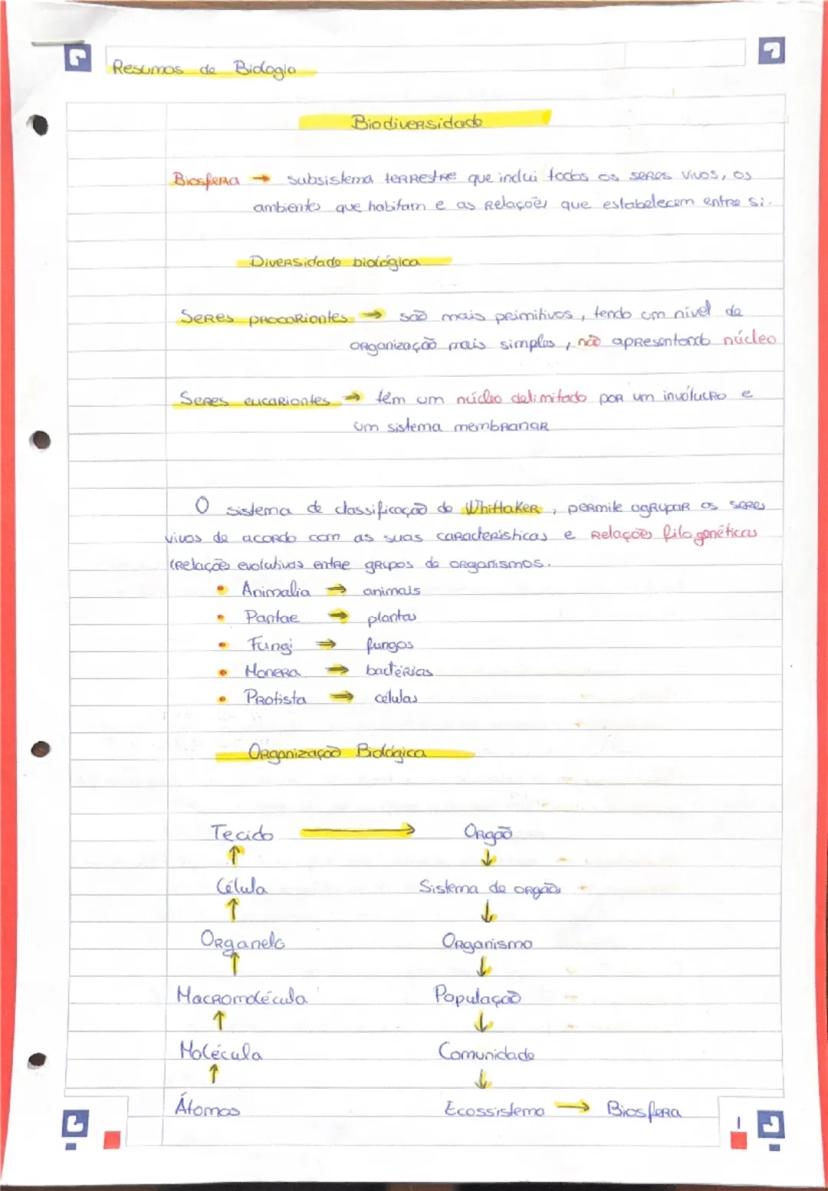 Resumos de Biologia
Biodiversidade
Biosfera → subsistema terrestre que inclui todos os seres vivos, os
ambiente que habitam e as relações que estabelecem entre si.
Diversidade biológica
Seres procariontes → são mais primitivos, tendo um nível de
organização mais simples, não apresentando núcleo
Seres eucariontes → têm um núcleo delimitado por um invólucro e
um sistema membranar
O sistema de classificação de Whittaker, permite agrupar os seres
vivos de acordo com as suas características e relações filogenéticas
(relações evolutivas entre grupos de organismos.
• Animalia → animais
• Pantae → plantas
• Fungi → fungos
• Monera → bactérias
• Protista → células
Organização Biológica
Tecido → Orgão
↑ ↓
Célula Sistema de orgãos
↑ ↓
Organelo Organismo
↑ ↓
Macromolécula População
↑ ↓
Molécula Comunidade
↑ ↓
Átomos Ecossistema → Biosfera
1